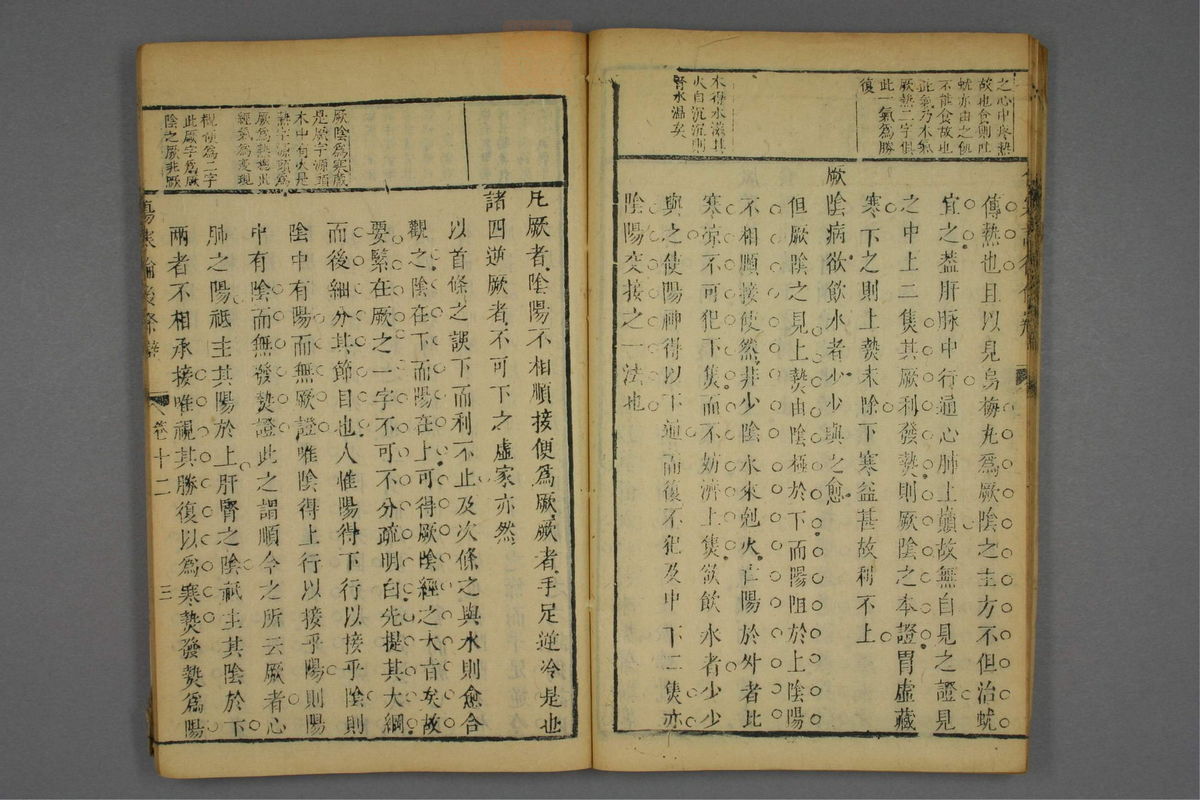 之心中疼熱
故也食則吐
蚘亦由之飢
不能食故也
此氣乃木氣
厥熱二字俱
此一氣為勝
復
木得水滋其
火自沉沉則
腎水溫矣
傳熱也且以見烏梅丸爲厥陰之主方不但治蚘
宜之葢肝脉中行通心肺上巔故無自見之證見
之中上二焦其厥利發熱則厥陰之本證胃虛藏
寒下之則上熱未除下寒益甚故利不止
厥陰病欲飲水者少少與之愈
但厥陰之見上熱由陰極於下而陽阻於上陰陽
不相順接使然非少陰水來尅火亡陽於外者比
寒凉不可犯下焦而不妨濟上焦欲飲水者少少
與之使陽神得以下通而復不犯及中下二焦亦
陰陽交接之一法也
厥陰爲寒藏
是厥字源頭
木中有火是
熱字源頭爲
厥爲熱總出
經氣爲變現
觀便爲二字
此厥字爲厥
陰之厥非厥
凡厥者陰陽不相順接便爲厥厥者手足逆冷是也
諸四逆厥者不可下之虛家亦然
以首條之誤下而利不止及次條之與水則愈合
觀之陰在下而陽在上可得厥陰經之大旨矣故
要緊在厥之一字不可不分疏明白先提其大綱
而後細分其節目也人惟陽得下行以接乎陰則
陰中有陽而無厥證唯陰得上行以接乎陽則陽
中有陰而無發熱證此之謂順今之所云厥者心
肺之陽祇主其陽於上肝腎之陰祇主其陰於下
兩者不相承接唯視其勝復以爲寒熱發熱爲陽
傷寒論後條辨
卷十二
三